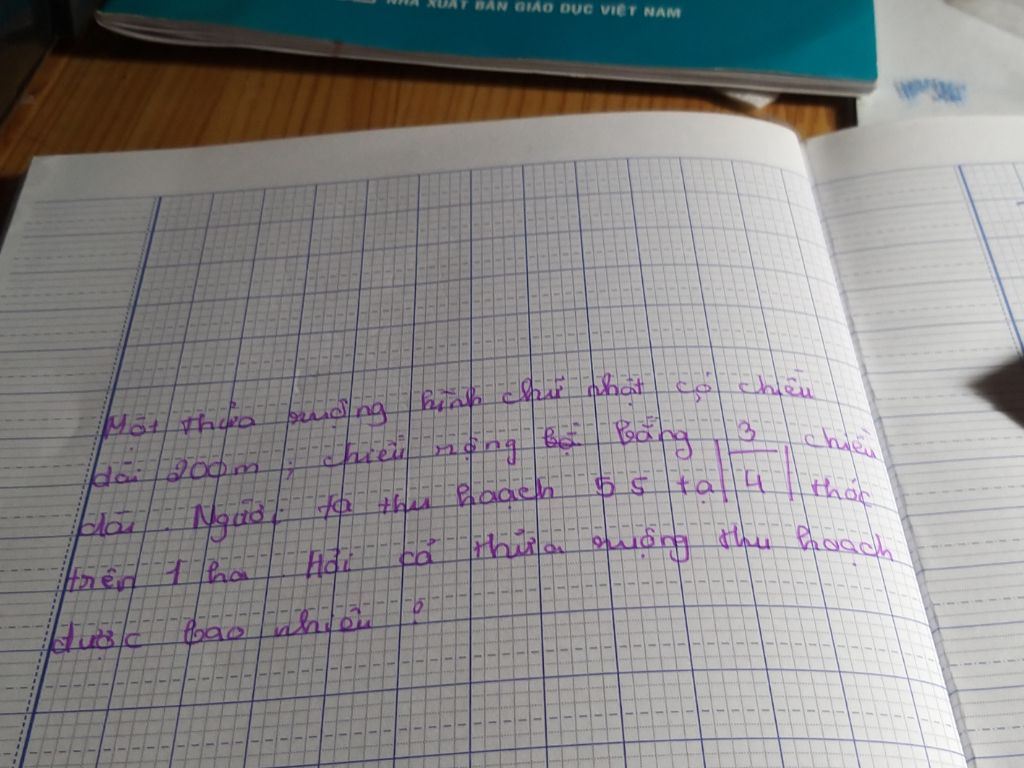 NHÀ XUẤT BẢN GIÁO DỤC VIỆT NAM
Một thửa ruộng hình chữ nhật có chiều
dài 200m, chiều rộng bằng 3/4 chiều
dài. Người ta thu hoạch 55 tạ thóc
trên 1 ha. Hỏi cả thửa ruộng thu hoạch
được bao nhiêu ?